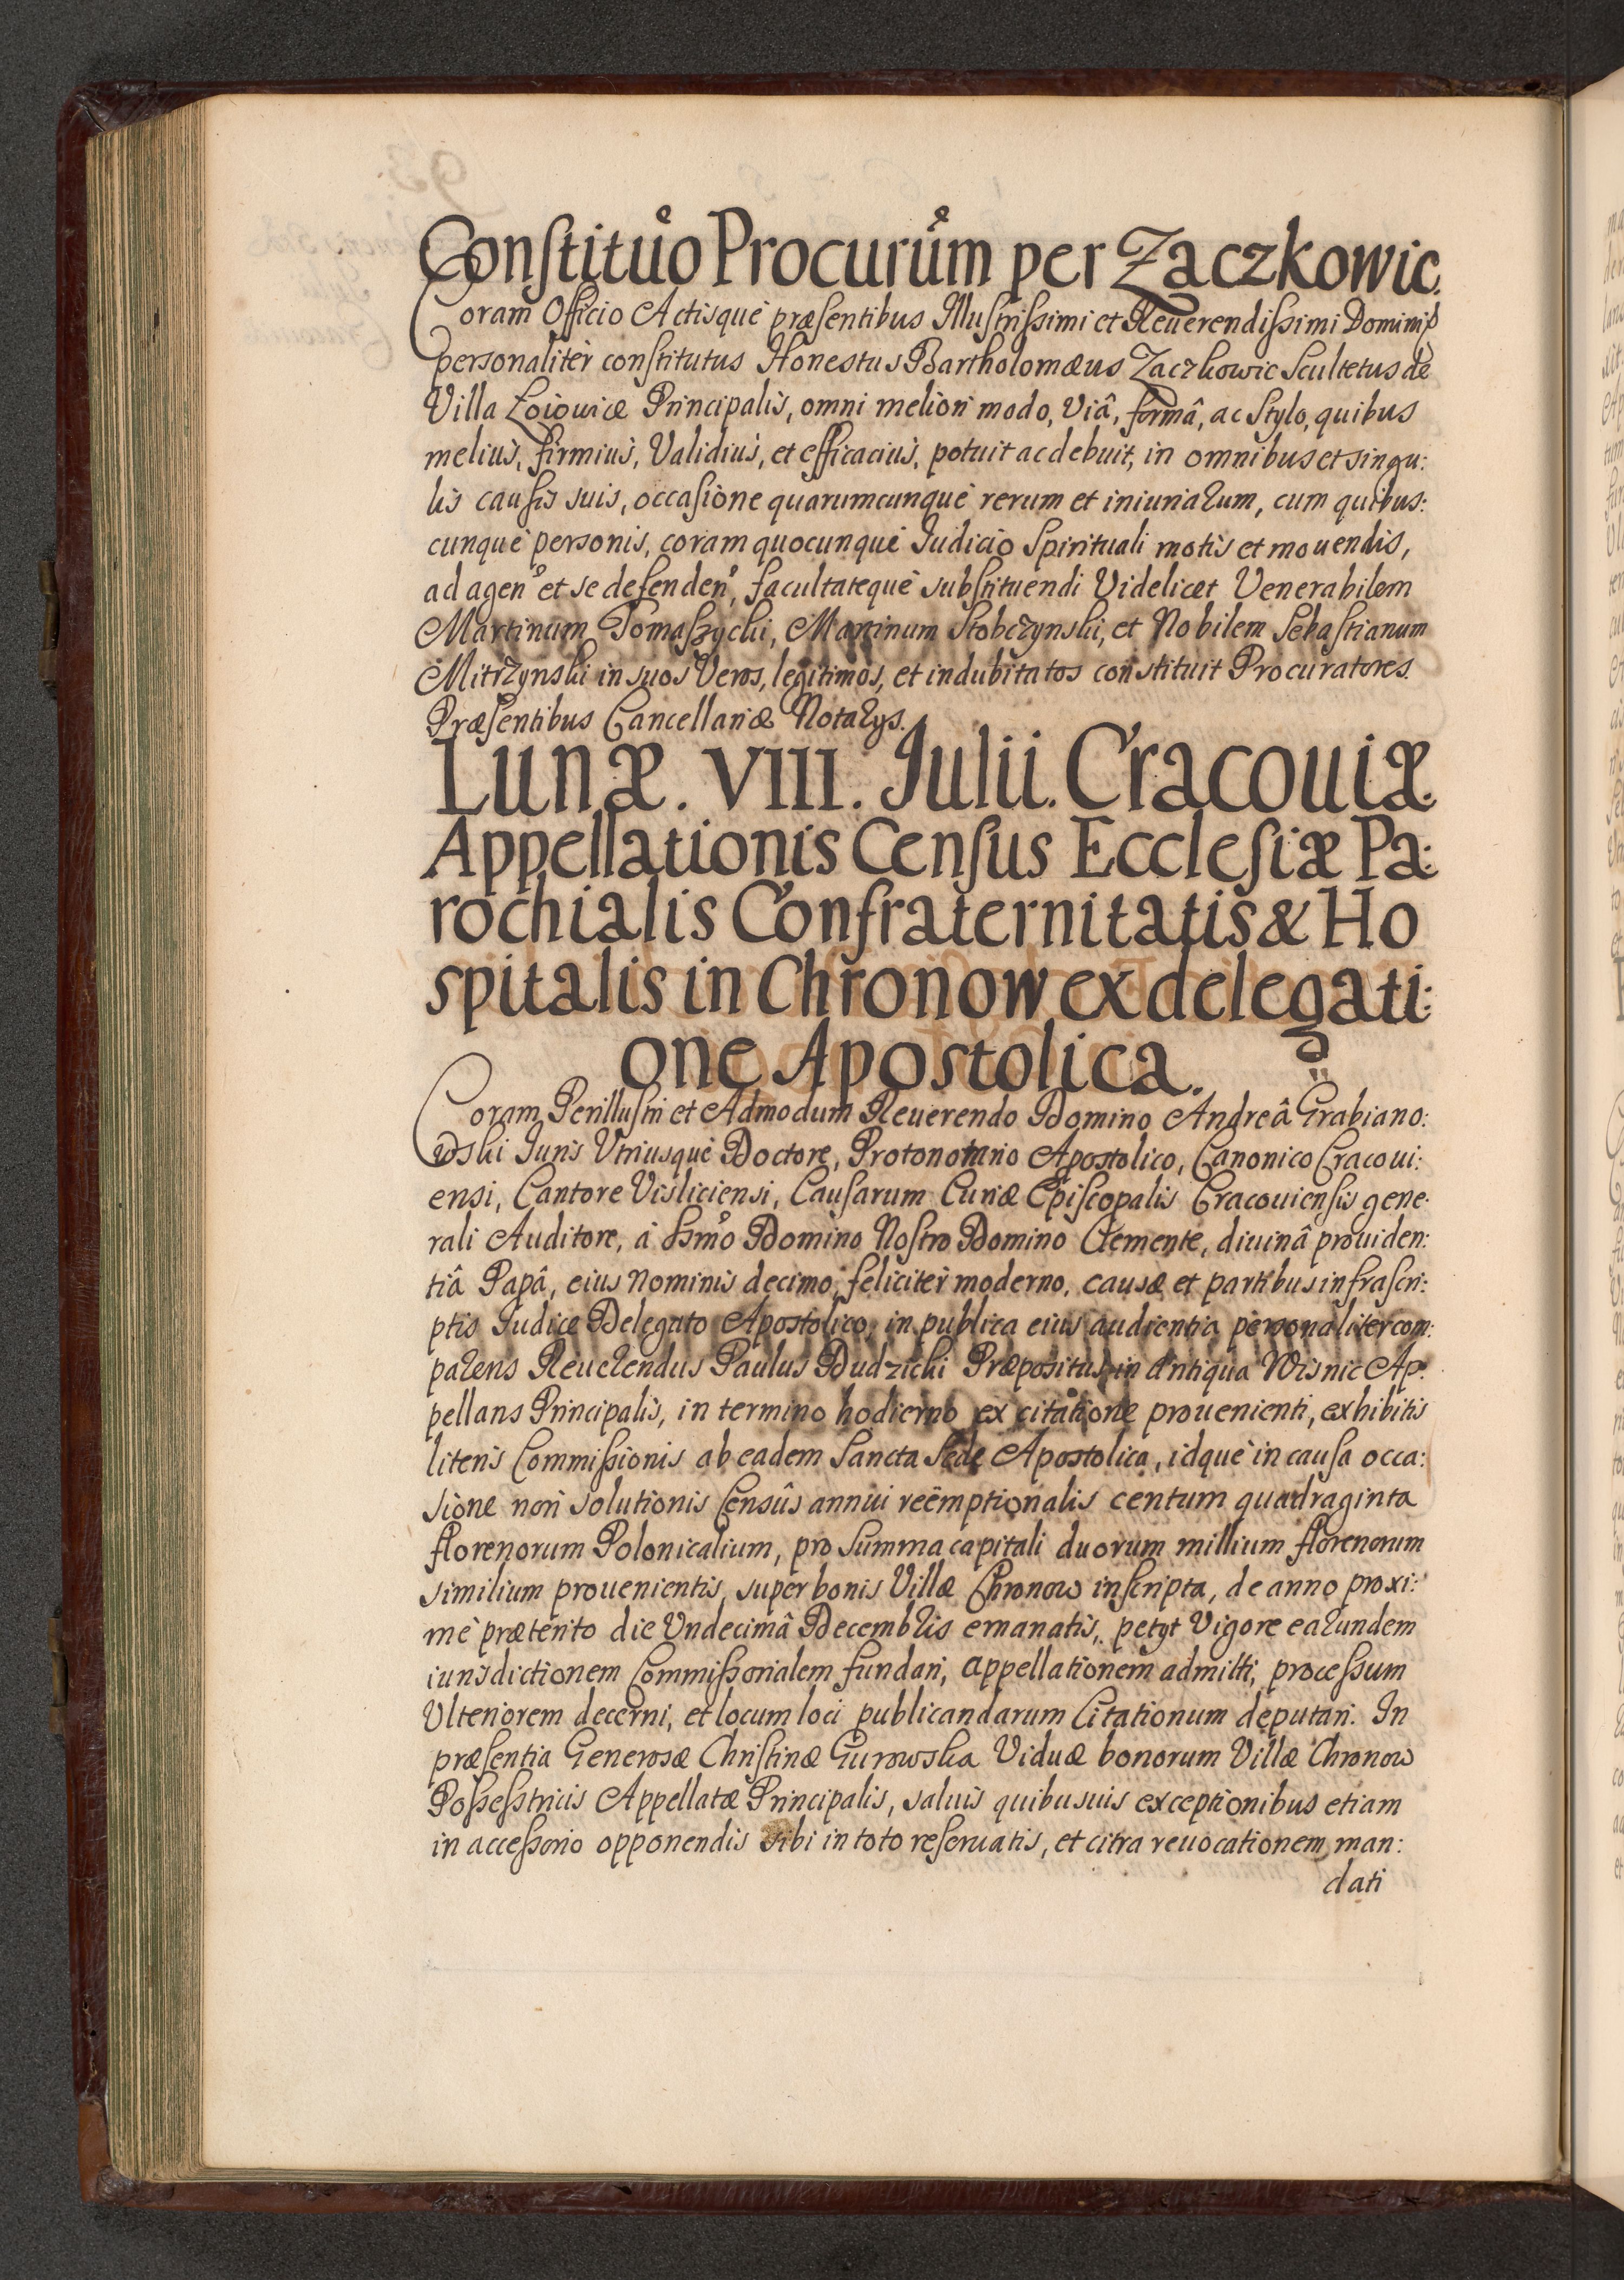 Constituo Procurum per Zaczkowic.
Coram Officio Actisque præsentibus Illustrissimi et Reuerendissimi Domini
personaliter constitutus Honestus Bartholomæus Zaczkowic Scultetus de
Villa Principalis, omni meliori modo, Viâ, formâ, ac Stylo, quibus
melius, firmius, Validius, et efficacius, potuit ac debuit, in omnibus et singu:
lis causis suis, occasione quarumcunque rerum et iniuriarum, cum quibus:
cunque personis, coram quocunque Iudicio Spirituali motis et mouendis,
ad agen° et se defenden°, facultateque substituendi Videlicet Venerabilem
Martinum Tomaszycki, Martinum Stobczynski, et Nobilem Sebastianum
Mitrzynski in suos Veros, legitimos, et indubitatos constituit Procuratores.
Præsentibus Cancellariæ Notarys.
Lunæ. VIII. Julii. Cracouiæ.
Appellationis Census Ecclesiæ Pa:
rochialis Confraternitatis & Ho
spitalis in Chronow ex delegati:
one Apostolica.
Coram Perillustri et Admodum Reuerendo Domino Andreâ Grabiano:
wski Iuris Vtriusque Doctore, Protonotario Apostolico, Canonico Cracoui:
ensi, Cantore Visliciensi, Causarum Curiæ Episcopalis Cracouiensis gene:
rali Auditore, à Ssmo Domino Nostro Domino Clemente, diuinâ prouiden:
tiâ Papâ, eius nominis decimo, feliciter moderno, causæ et partibus infrascri:
ptis Iudice Delegato Apostolico, in publica eius audientia personaliter com:
parens Reuerendus Paulus Dudzicki Præpositus in Antiqua Wisnic Ap:
pellans Principalis, in termino hodierno ex citatione prouenienti, exhibitis
literis Commissionis ab eadem Sancta Sede Apostolica, idque in causa occa:
sione non solutionis Censûs annui reëmptionalis centum quadraginta
florenorum Polonicalium, pro summa capitali duorum millium florenorum
similium prouenientis, super bonis Villæ Chronow inscripta, de anno proxi:
mè præterito die Vndecimâ Decembris emanatis, petyt Vigore earundem
iurisdictionem Commissorialem fundari, appellationem admitti, processum
Vlteriorem decerni, et locum loci publicandarum Citationum deputari. In
præsentia Generosæ Christinæ Gurowska Viduæ bonorum Villæ Chronow
Possesstricis Appellatæ Principalis, saluis quibusuis exceptionibus etiam
in accessorio opponendis sibi in toto reseruatis, et citra reuocationem man:
dati